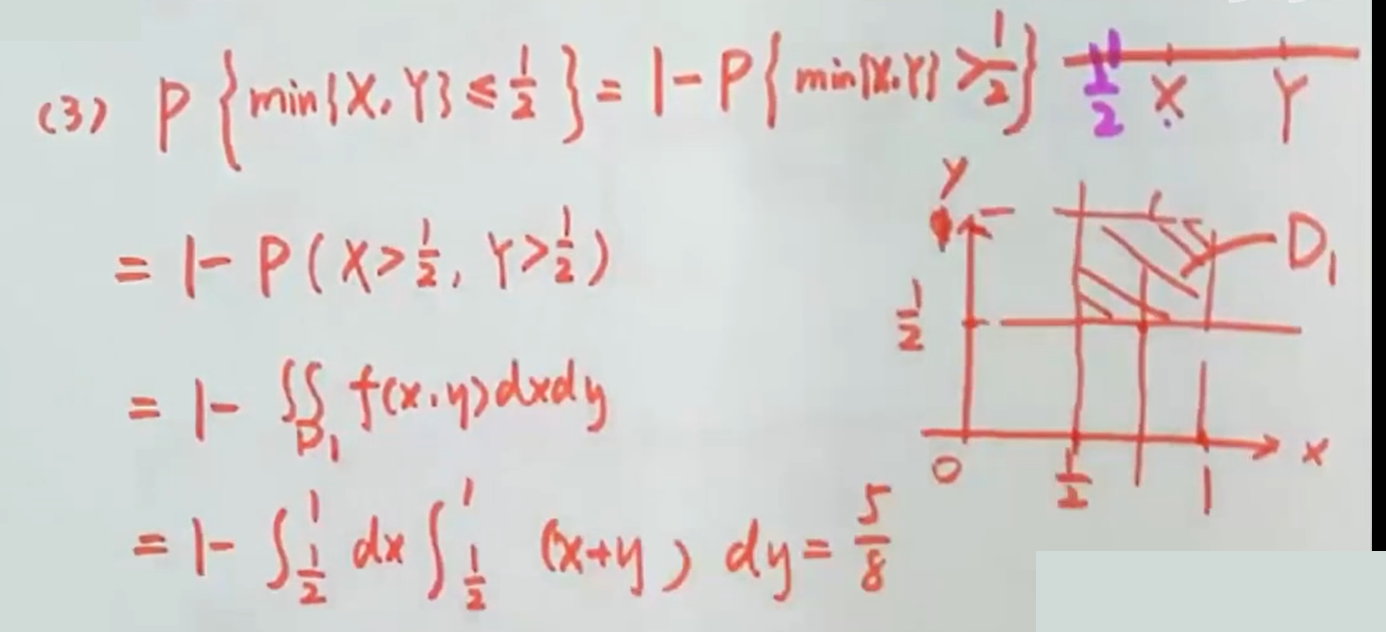 (3) P{min{X,Y}≤1/2}=1-P{min{X,Y}>1/2}
1/2 X Y
=1-P(X>1/2, Y>1/2)
=1-∬_{D₁} f(x,y)dxdy
=1-∫_{1/2}^{1} dx ∫_{1/2}^{1} (x+y) dy = 5/8
y
D₁
1/2
0 1/2 1 x